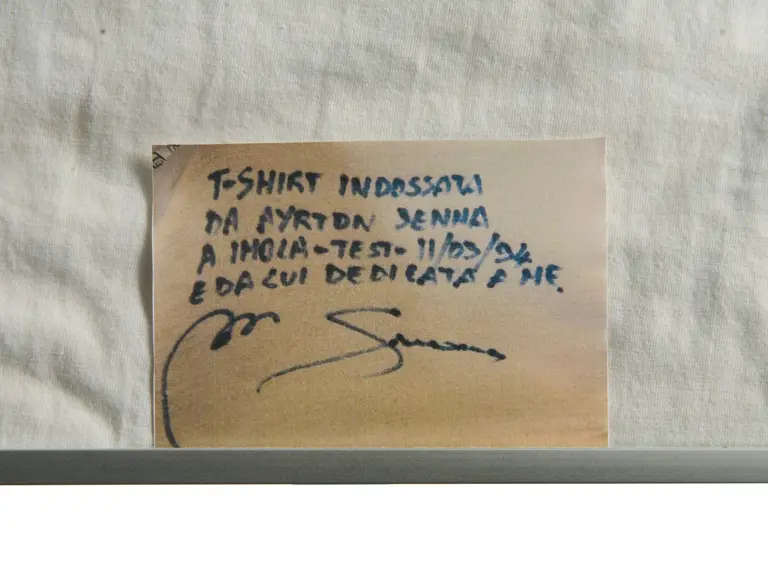 T-SHIRT INDOSSATA
DA AYRTON SENNA
A IMOLA-TEST-11/03/94
E DA LUI DEDICATA A ME.